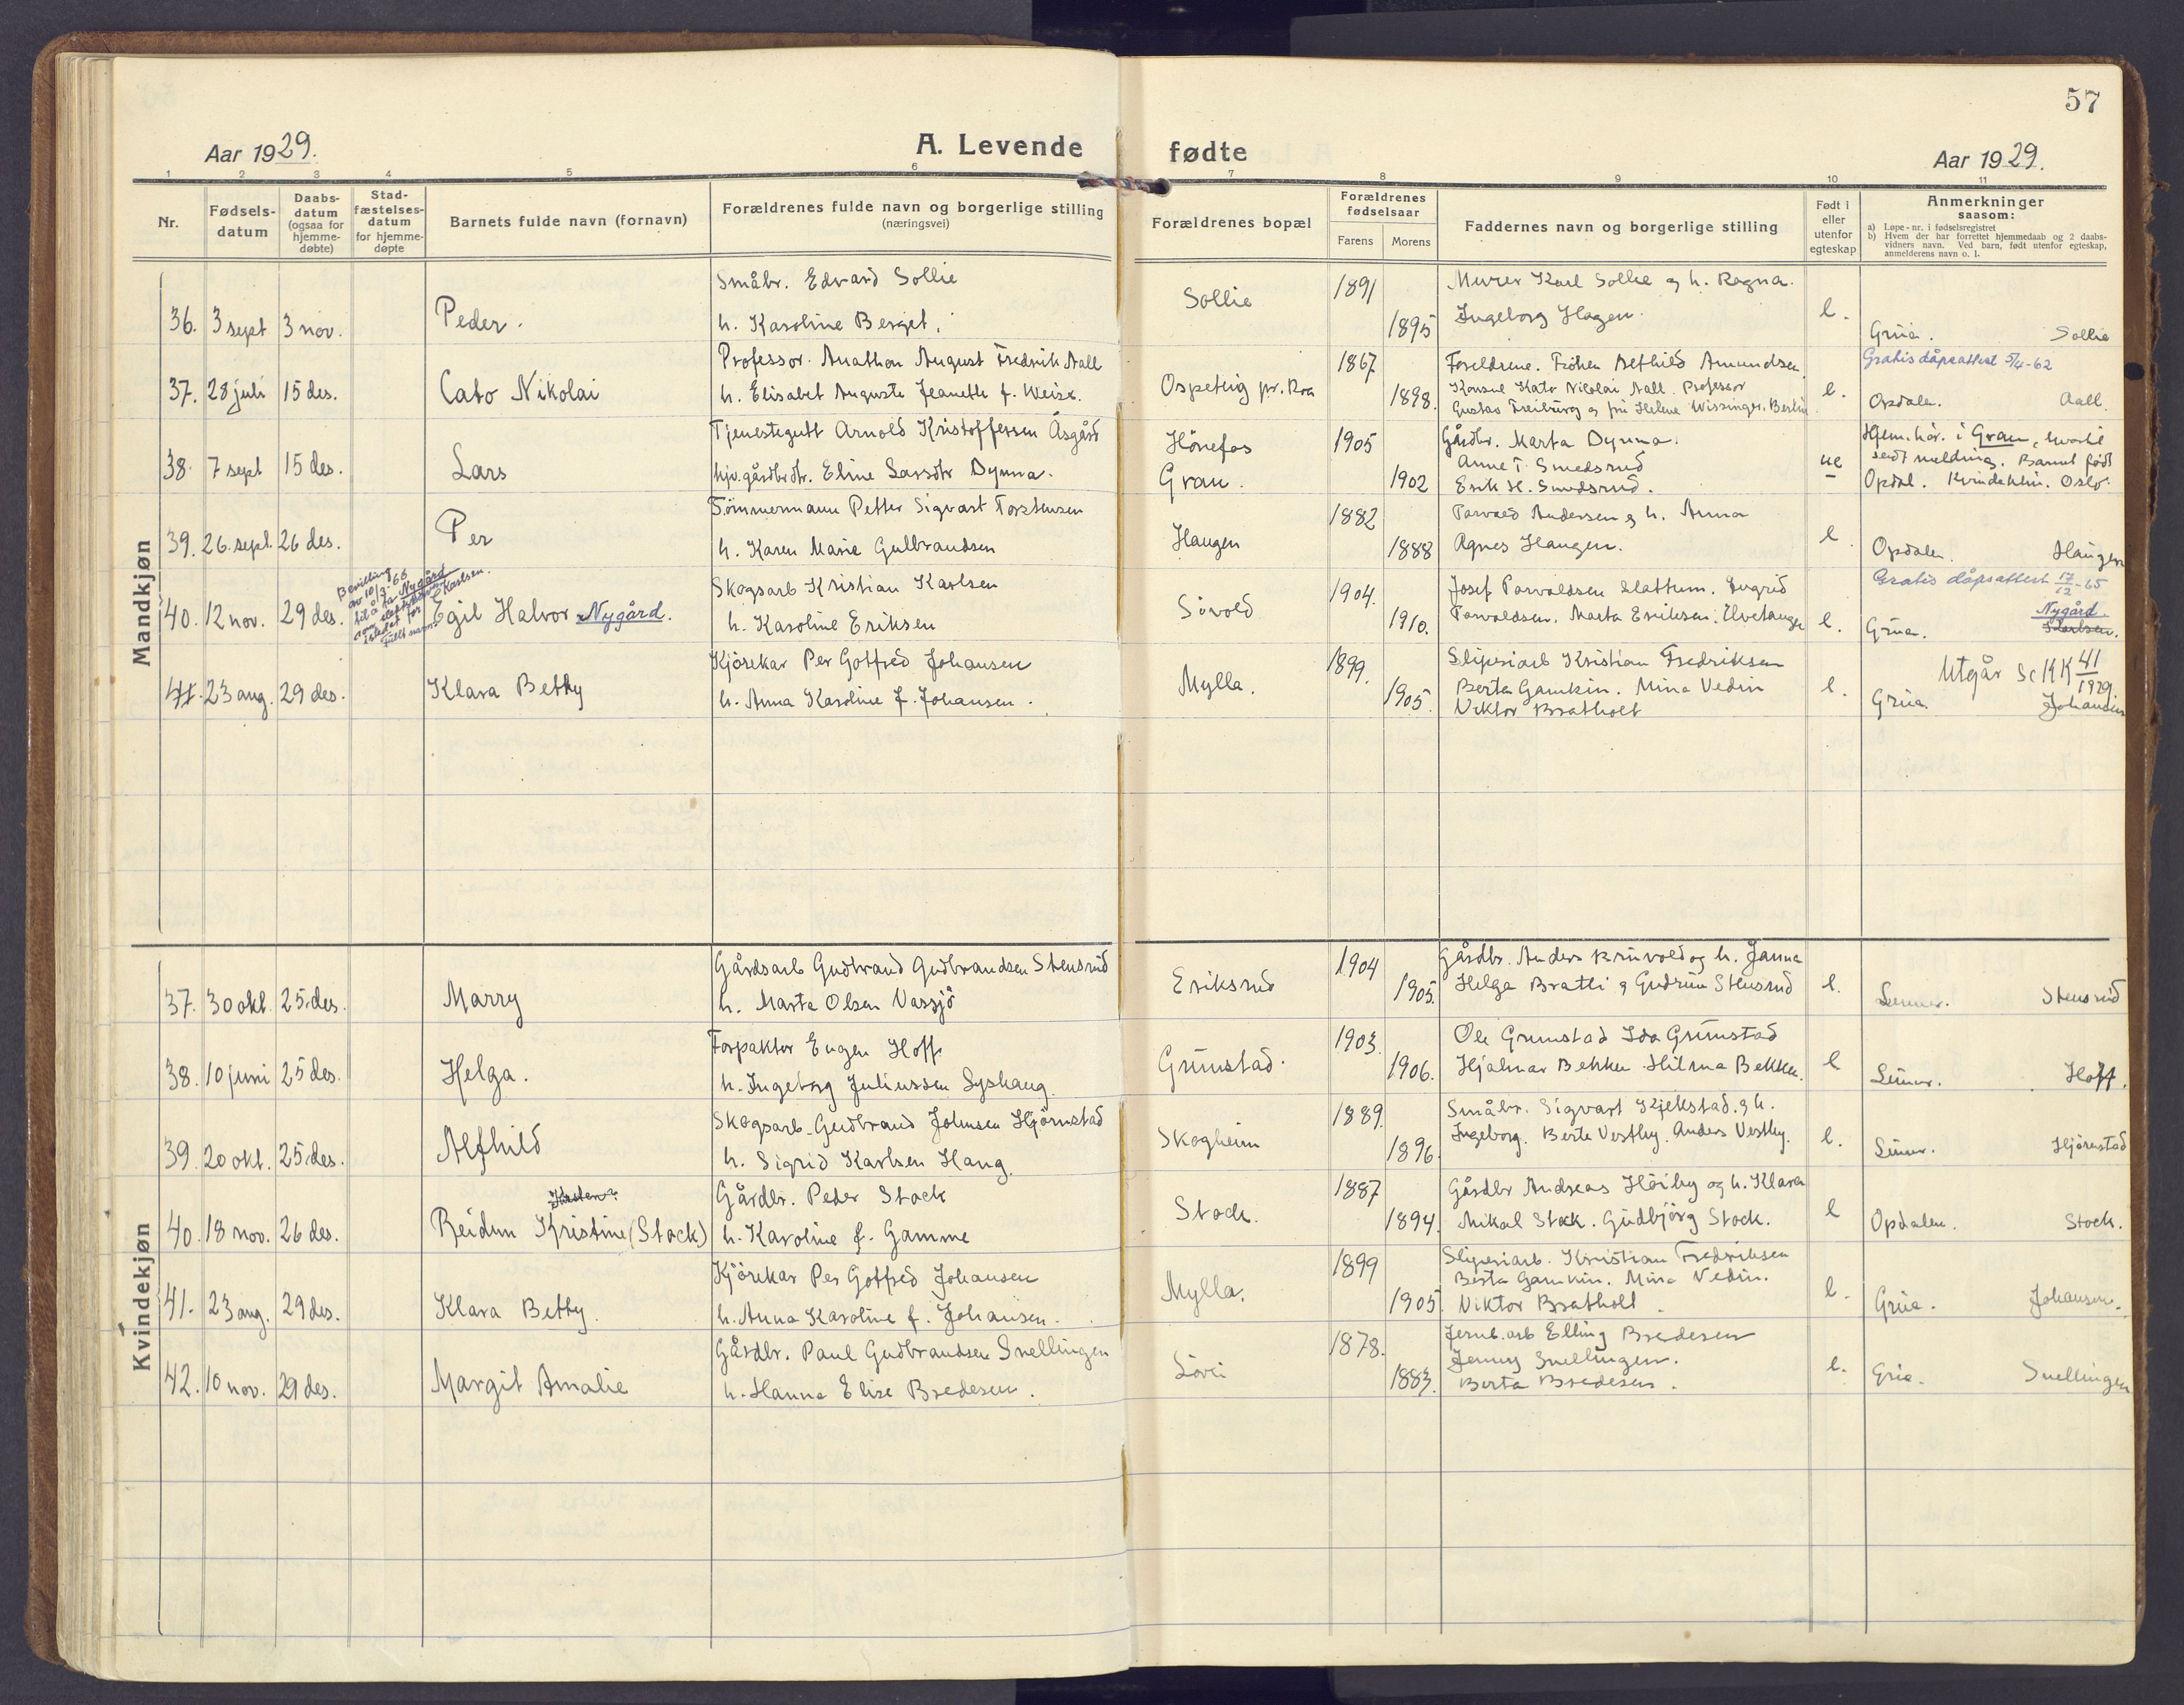 57
Aar 1929.
A. Levende fødte
Aar 1929.
1 2 3 4 5 6 7 8 9 10 11
Nr.
Fødsels-
datum
Daabs-
datum
(ogsaa for
hjemme-
døbte)
Stad-
fæstelses-
datum
for hjemme-
døpte
Barnets fulde navn (fornavn)
Forældrenes fulde navn og borgerlige stilling
(næringsvei)
Forældrenes bopæl
Forældrenes
fødselsaar
Farens Morens
Faddernes navn og borgerlige stilling
Født i
eller
utenfor
egteskap
Anmerkninger
saasom:
a) Løpe-nr. i fødselsregistret
b) Hvem der har forrettet hjemmedaab og 2 daabs-
vidners navn. Ved barn, født utenfor egteskap,
anmelderens navn o. l.
Mandkjøn
36. 3 sept 3 nov. Peder.
Småbr. Edvard Sollie
h. Karoline Berget.
Sollie 1891 1895
Murer Karl Sollie og h. Ragna.
Ingeborg Hagen.
e. Grua. Sollie
37. 28 juli 15 des. Cato Nikolai
Professor. Anathon August Fredrik Aall
h. Elisabet Auguste Jeanette f. Weise.
Ospeteig pr. Roa 1867 1898.
Foreldrene. Frøken Alfhild Amundsen
Konsul Kato Nicolai Aall. Professor
Gustav Freiburg og fru Helene Wissinger. Berlin
e. Gratis dåpsattest 5/4-62
Opdalen. Aall.
38. 7 sept 15 des. Lars
Tjenestegutt Arnold Kristoffersen Åsgård
hjv. gårdbrdtr. Eline Larsdtr Dynna.
Hönefos
Gran. 1905 1902
Gårdbr. Marta Dynna.
Anne T. Smedsrud
Erik H. Smedsrud.
ue
Hjem.hör. i Gran, hvortil
sendt melding. Barnet født
Opdal. Kvindeklin. Oslo.
39. 26. sept. 26 des. Per
Tömmermann Petter Sigvart Torstensen
h. Karen Marie Gulbrandsen
Haugen 1882 1888
Torvald Andersen og h. Anna
Agnes Haugen.
e. Opdalen Haugen
40. 12 nov. 29 des.
Bevilling
av 10/3-66
til å ta Nygård
som slektsnavn
istedet for Karlsen.
fullt navn:
Egil Halvor Nygård.
Skogsarb Kristian Karlsen
h. Karoline Eriksen
Sivold 1904. 1910.
Josef Torvaldsen Slattum. Ingrid
Torvaldsen. Marta Eriksen. Elvetangen
e. Gratis dåpsattest 17/12-65
Nygård.
Grua. Karlsen.
41. 23 aug. 29 des. Klara Betty
Kjörekar Per Gotfred Johansen
h. Anna Karoline f. Johansen.
Mylla. 1899. 1905.
Sliperiarb Kristian Fredriksen
Berta Gamkin. Mina Vedin
Viktor Bratholt
e. Utgår se KK 41/1929.
Grua Johansen
Kvindekjøn
37. 30 okt. 25. des. Marry
Gårdsarb Gudbrand Gudbrandsen Stensrud
h. Marta Olsen Vassjö
Eriksrud 1904 1905.
Gårdbr. Anders Kruvold og h. Janna
Helga Bratli og Gudrun Stensrud
e. Lunner. Stensrud
38. 10 juni 25 des. Helga.
Forpakter Eugen Hoff
h. Ingeborg Juliussen Lyshaug
Grumstad. 1903. 1906.
Ole Grumstad Ida Grumstad
Hjalmar Bekken Hilma Bekken.
e Lunner. Hoff.
39. 20 okt. 25. des. Alfhild
Skogsarb. Gudbrand Johnsen Hjörnstad
h. Sigrid Karlsen Haug.
Skogheim 1889. 1896.
Småbr. Sigvart Kjekstad. og h.
Ingeborg. Berte Vestby. Anders Vestby.
e. Lunner. Hjörnstad
40. 18 nov. 26 des. Reidun Kristine (Stock)
Gårdbr. Peder Stock
h. Karoline f. Gamme
Stock. 1887 1894.
Gårdbr Andreas Höiby og h. Klara
Mikal Stock. Gudbjörg Stock.
e Opdalen. Stock.
41. 23 aug. 29 des. Klara Betty.
Kjörekar Per Gotfred Johansen
h. Anna Karoline f. Johansen.
Mylla. 1899 1905.
Sliperiarb. Kristian Fredriksen
Berta Gamkin. Mina Vedin.
Viktor Bratholt.
e. Grua. Johansen.
42. 10 nov. 29 des. Margit Amalie
Gårdbr. Paul Gudbrandsen Snellingen
h. Hanna Elise Bredesen.
1878. 1883.
Jernb.arb Elling Bredesen
Jenny Snellingen.
Berta Bredesen.
e. Grua. Snellingen